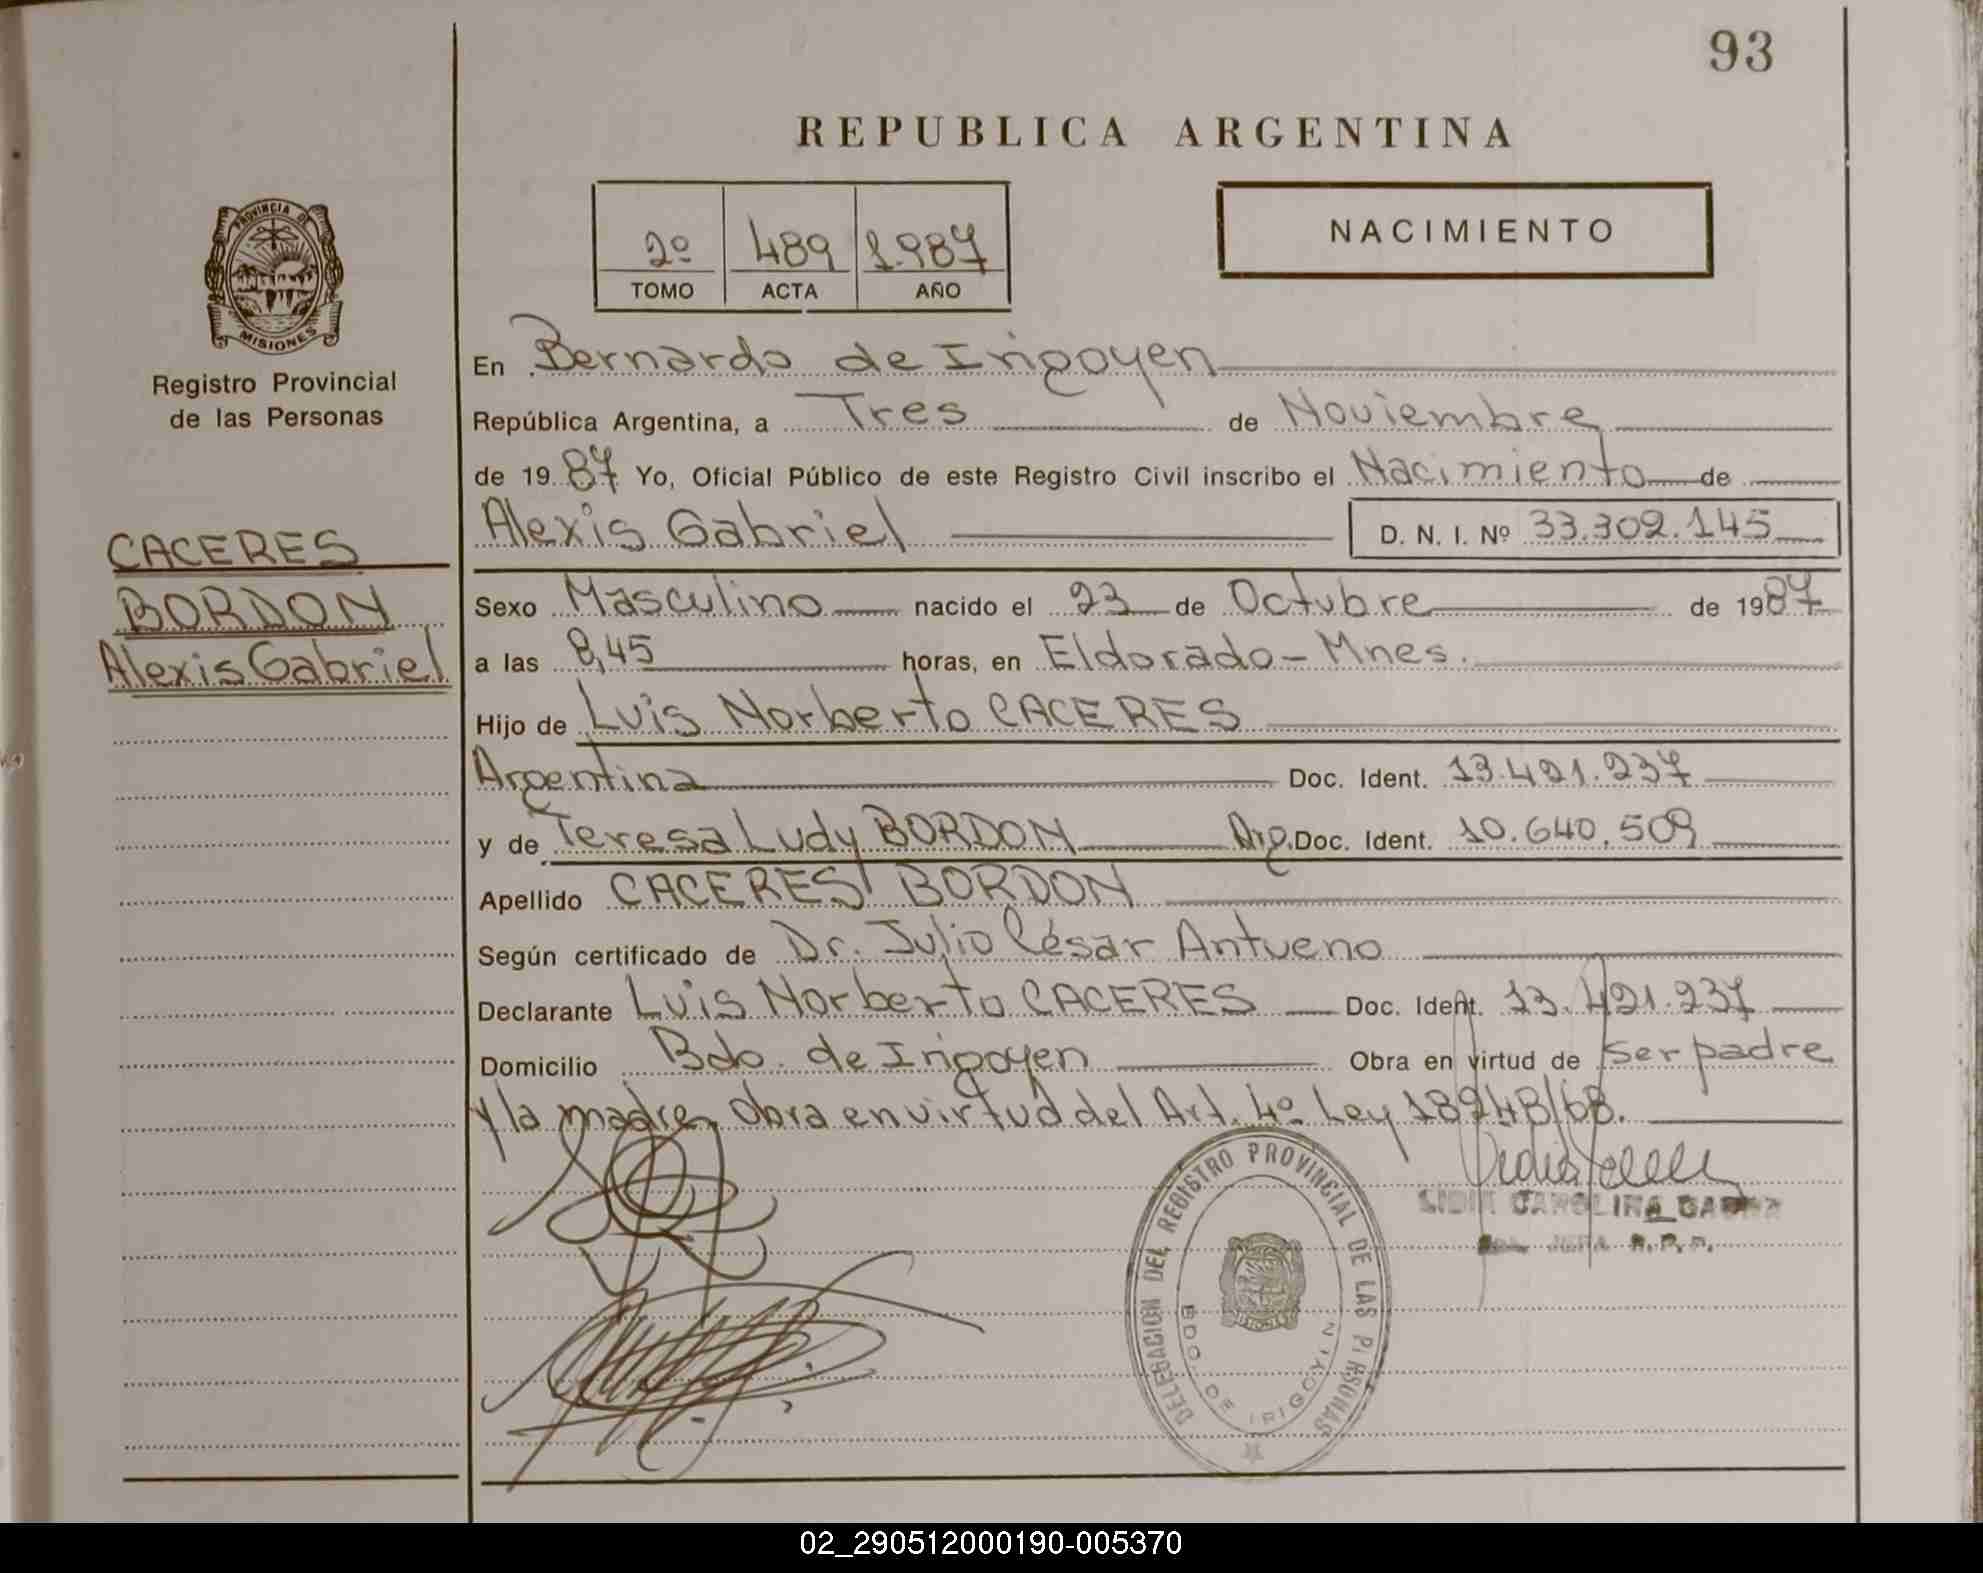 93
REPUBLICA ARGENTINA
PROVINCIA DE
MISIONES
Registro Provincial
de las Personas
2º 489 1.987
TOMO ACTA AÑO
NACIMIENTO
En Bernardo de Irigoyen
República Argentina, a Tres de Noviembre
de 1987 Yo, Oficial Público de este Registro Civil inscribo el Nacimiento de
Alexis Gabriel D. N. I. Nº 33.302.145
CACERES
BORDON
Alexis Gabriel
Sexo Masculino nacido el 23 de Octubre de 1987
a las 8,45 horas, en Eldorado - Mnes.
Hijo de Luis Norberto CACERES
Argentina Doc. Ident. 13.421.237
y de Teresa Ludy BORDON Arg. Doc. Ident. 10.640.509
Apellido CACERES BORDON
Según certificado de Dr. Julio César Antueno
Declarante Luis Norberto CACERES Doc. Ident. 13.421.237
Domicilio Bdo. de Irigoyen Obra en virtud de ser padre
y la madre, obra en virtud del Art. 4º Ley 18248/68.
DELEGACION DEL REGISTRO PROVINCIAL DE LAS PERSONAS
BDO. DE IRIGOYEN
LIDIA CAROLINA
JEFA R.P.P.
02_290512000190-005370